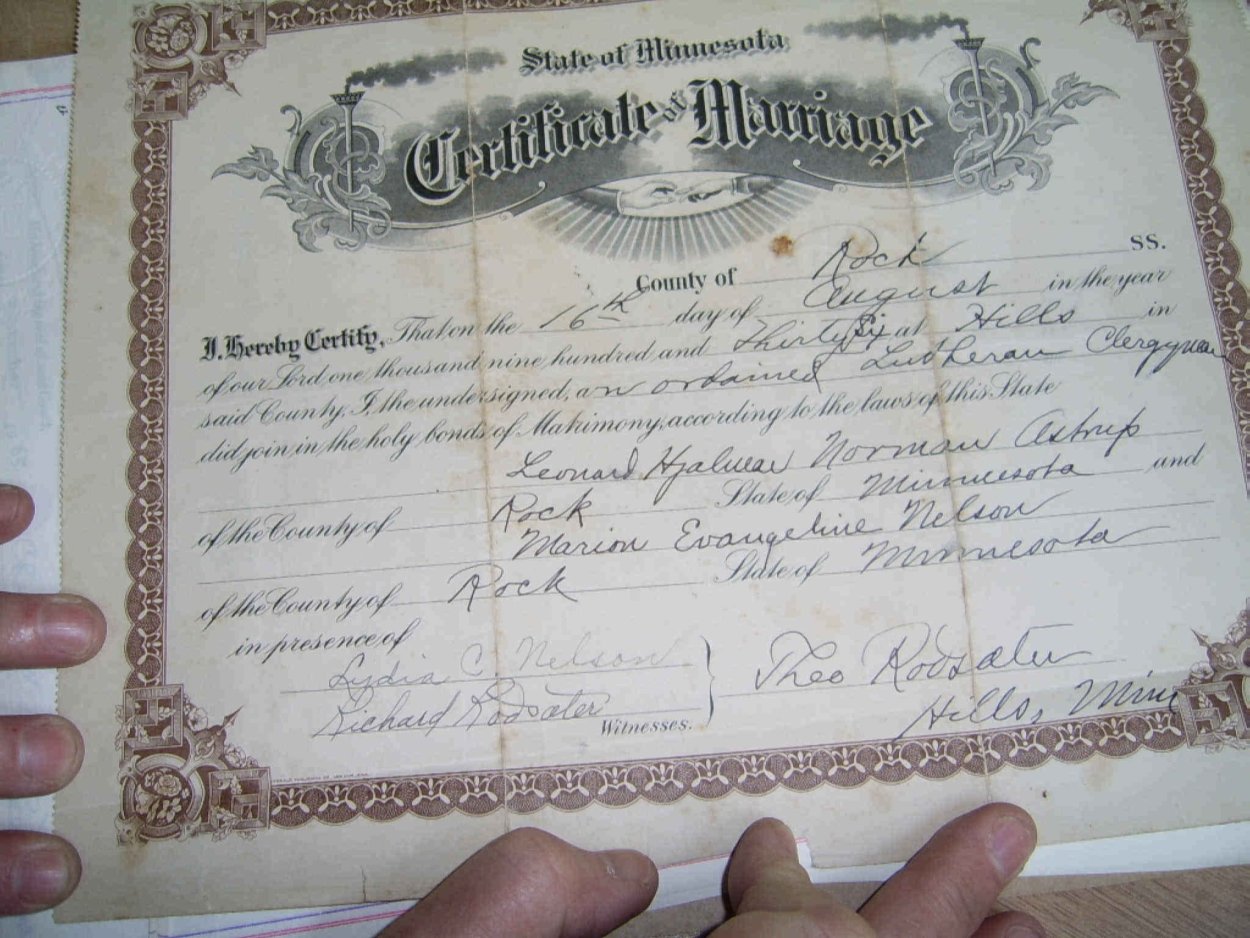 State of Minnesota
Certificate of Marriage
County of Rock SS.
I. Hereby Certify, That on the 16th day of August in the year
of our Lord one thousand nine hundred and Thirty Six at Hills in
said County, I, the undersigned, an ordained Lutheran Clergyman
did join in the holy bonds of Matrimony, according to the laws of this State
Leonard Hjalmar Norman Astrup
of the County of Rock State of Minnesota and
Marion Evangeline Nelson
of the County of Rock State of Minnesota
in presence of
Lydia C Nelson
Richard Rodsater
Witnesses.
Theo Rodsater
Hills, Minn